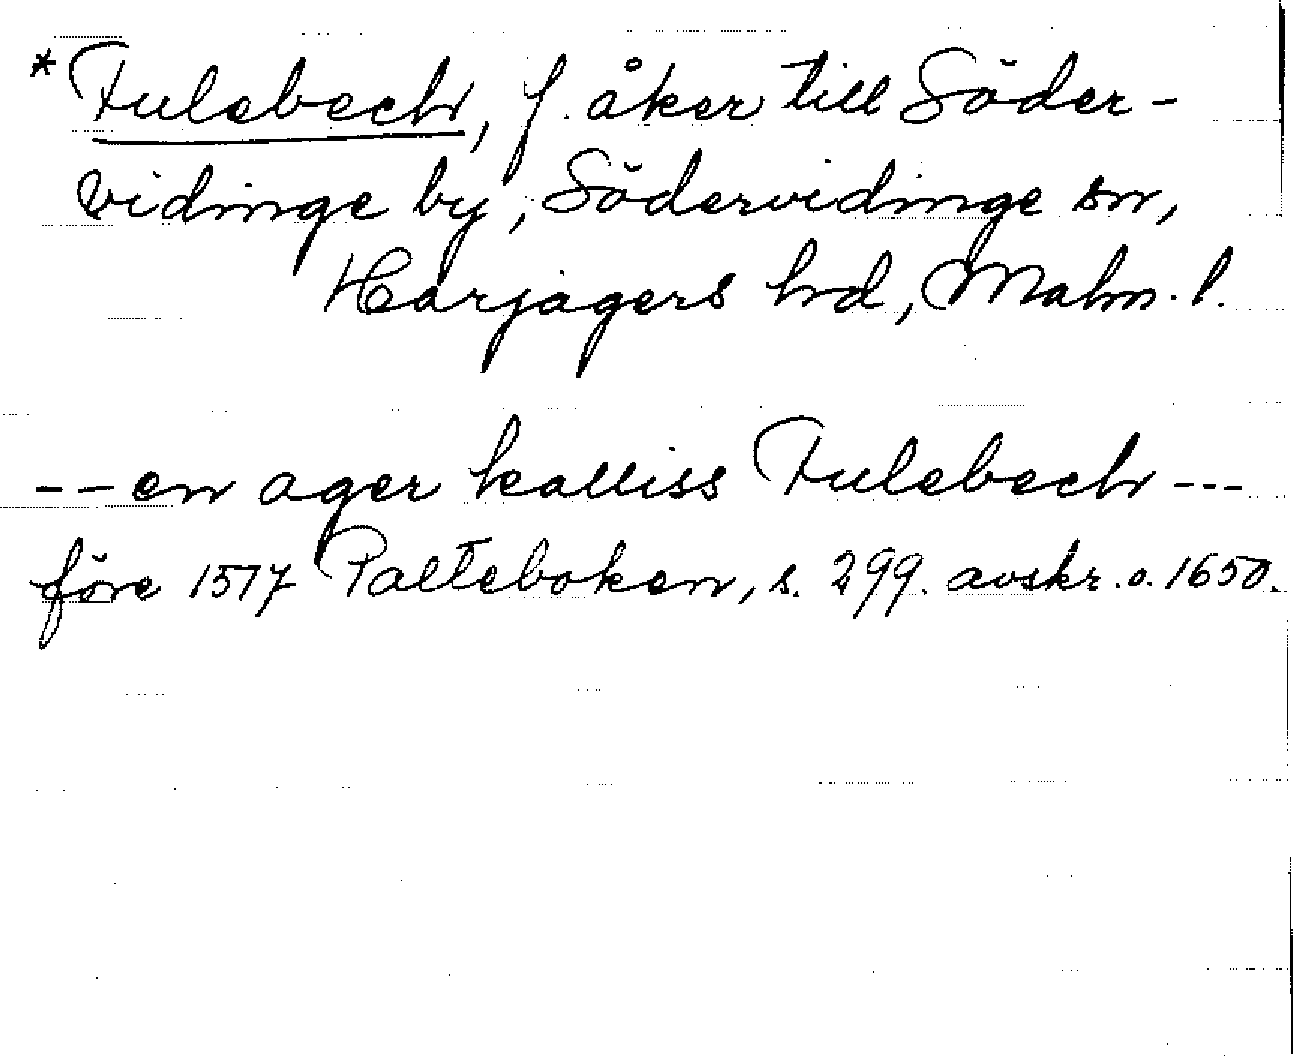 *Fulebech, f. åker till Söder-
vidinge by, Södervidinge sn,
Harjagers hd, Malm. l.
-- en ager kalliss Fulebech ---
före 1517 Palteboken, s. 299. avskr. o. 1650.